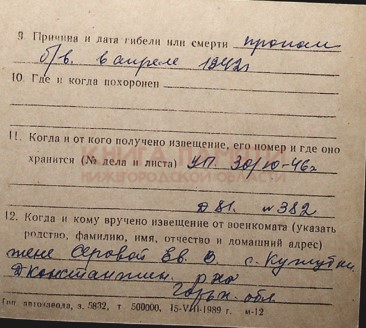 9. Причина и дата гибели или смерти пропал
б/в. в апреле 1942г
10. Где и когда похоронен
11. Когда и от кого получено извещение, его номер и где оно
хранится (№ дела и листа) УП. 30/10-46г
КНИГА ПАМЯТИ
НИЖЕГОРОДСКОЙ ОБЛАСТИ
Д 81. № 382
12. Когда и кому вручено извещение от военкомата (указать
родство, фамилию, имя, отчество и домашний адрес)
жене Серовой Ев. В с.
Дконстантин. р-на
Горьк. обл
Тип. автозавода, з. 5832, т 500000, 15-VIII-1989 г. м-12